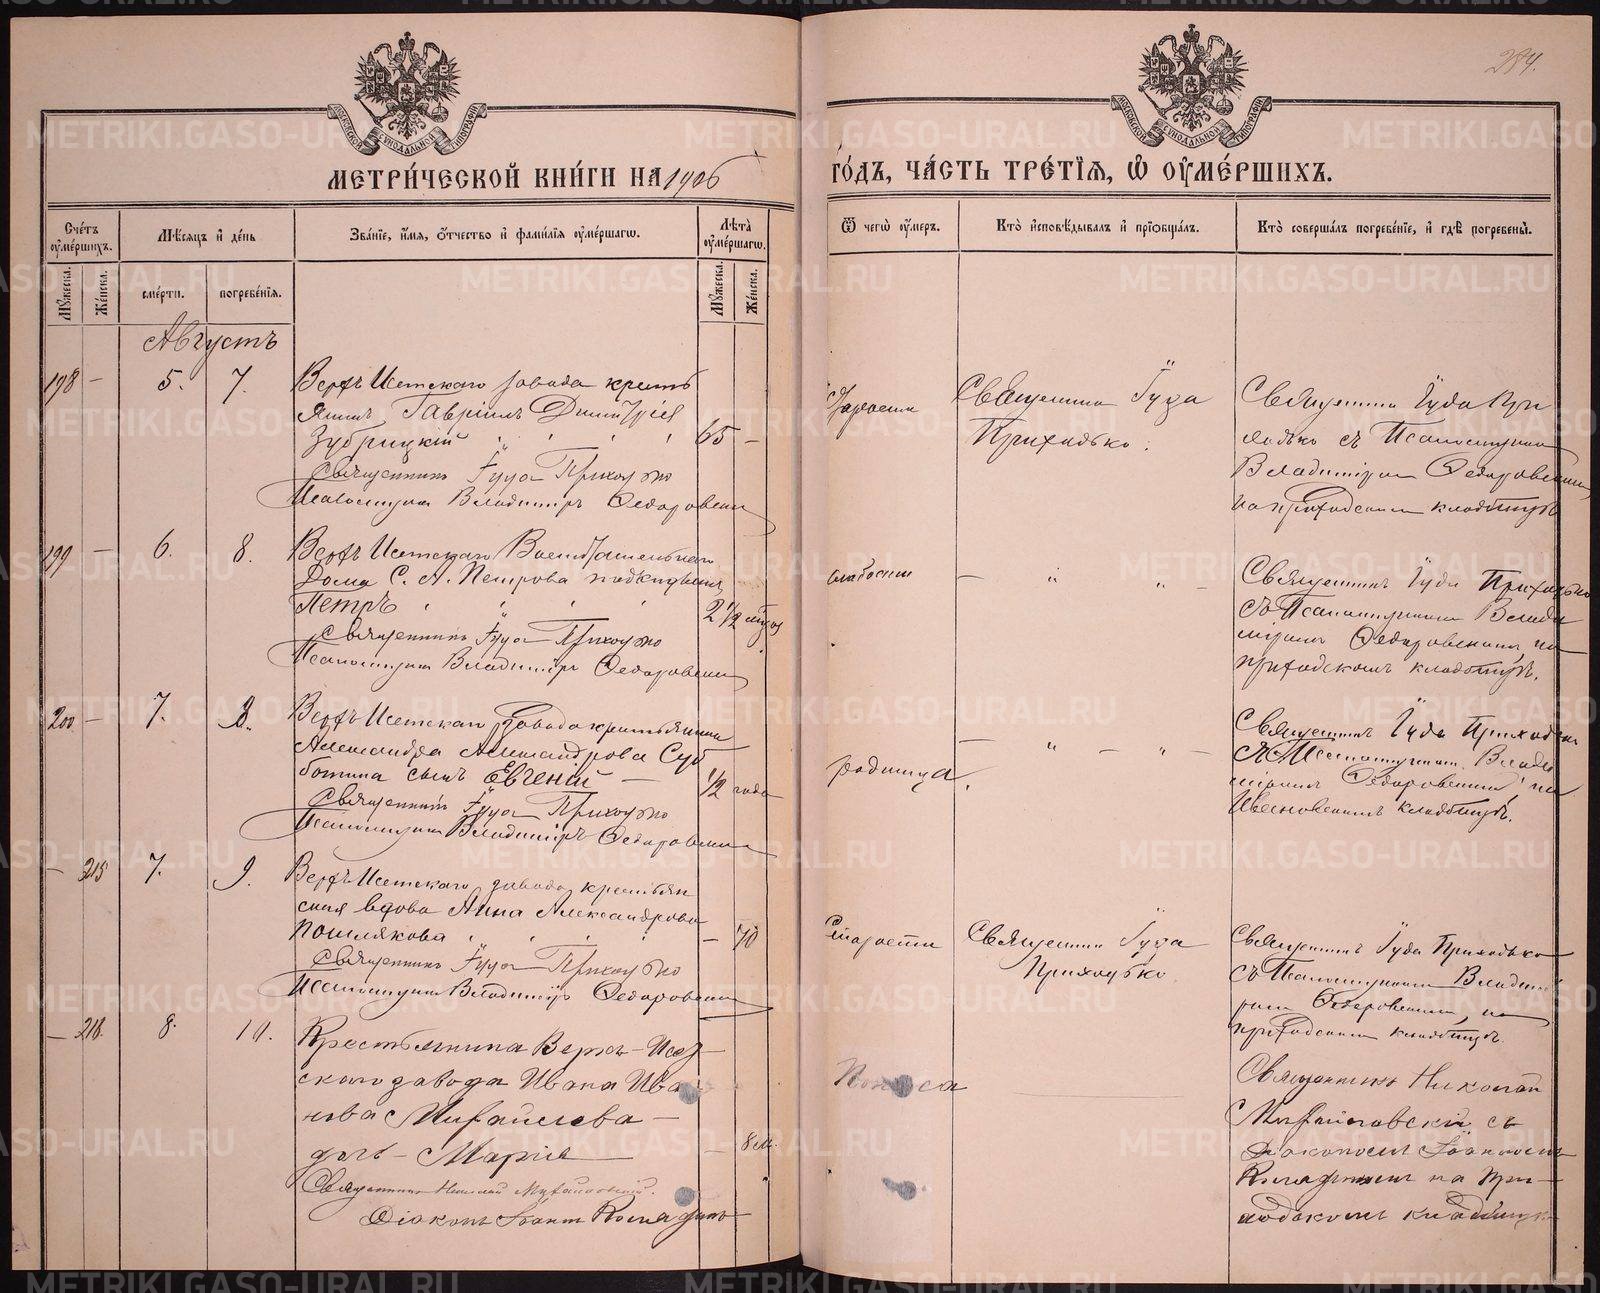 284.
МОСКОВСКОЙ СѴНОДАЛЬНОЙ ТИПОГРАФІИ
МОСКОВСКОЙ СѴНОДАЛЬНОЙ ТИПОГРАФІИ
МЕТРИ́ЧЕСКОЙ КНИ́ГИ НА 1906
ГО́ДЪ, ЧА́СТЬ ТРЕ́ТІѦ, Ѡ҆ ОУ҆МЕ́РШИХЪ.
Сче́тъ оу҆ме́ршихъ.
Мѣ́сяцъ и҆ де́нь
Зва́ніе, и҆́мя, ѻ҆́тчество и҆ фами́лія оу҆ме́ршагѡ.
Лѣ́та оу҆ме́ршагѡ.
Ѿ чегѡ̀ оу҆́меръ.
Кто̀ и҆сповѣ́дывалъ и҆ прїѻбща́лъ.
Кто̀ соверша́лъ погребе́ніе, и҆ гдѣ̀ погребены̀.
Мꙋ́жеска.
Же́нска.
сме́рти.
погребе́нія.
Мꙋ́жеска.
Же́нска.
Августъ
198 — 5. 7.
Верхъ Исетскаго завода кресть
янинъ Гавріилъ Димитріев
Зубрицкій 65 —
Священникъ Іуда Приходько
Псаломщикъ Владиміръ Федоровский
старости
Священник Іуда
Приходько.
Священник Іуда При
ходько съ Псаломщиком
Владиміром Федоровским
на приходском кладбищѣ
199 — 6. 8.
Верхъ Исетскаго Воспитательнаго
Дома С. А. Петрова подкидышъ
Петръ 2 1/2 мѣсяц
Священникъ Іуда Приходько
Псаломщикъ Владиміръ Федоровский
слабости — " " —
Священникъ Іуда Приходько
съ Псаломщикомъ Влади
міромъ Федоровскимъ, на
приходскомъ кладбищѣ.
200 — 7. 8.
Верхъ Исетскаго завода крестьянина
Александра Александрова Суб
ботина сынъ Евгеній — 1/2 года
Священникъ Іуда Приходько
Псаломщикъ Владиміръ Федоровский
родимца. — " — " —
Священникъ Іуда Приходько
съ Псаломщикомъ Влади
міромъ Федоровскимъ, на
Ивановскомъ кладбищѣ.
— 215 7. 9.
Верхъ Исетскаго завода крестьян
ская вдова Анна Александрова
Пошлякова — 70
Священникъ Іуда Приходько
Псаломщикъ Владиміръ Федоровский
Старости
Священник Іуда
Приходько
Священникъ Іуда Приходько
съ Псаломщикомъ Владимі
ромъ Федоровским, на
приходском кладбищѣ.
— 216. 8. 10.
Крестьянина Верхъ-Исет-
скаго завода Ивана Ива
нова Михайлова —
дочь — Марія — 8 м.
Священникъ Николай Михайловскій.
Діаконъ Іоаннъ
Поноса
Священникъ Николай
Михайловскій съ
діакономъ Іоанномъ
на при-
ходскомъ кладбищѣ
METRIKI.GASO-URAL.RU